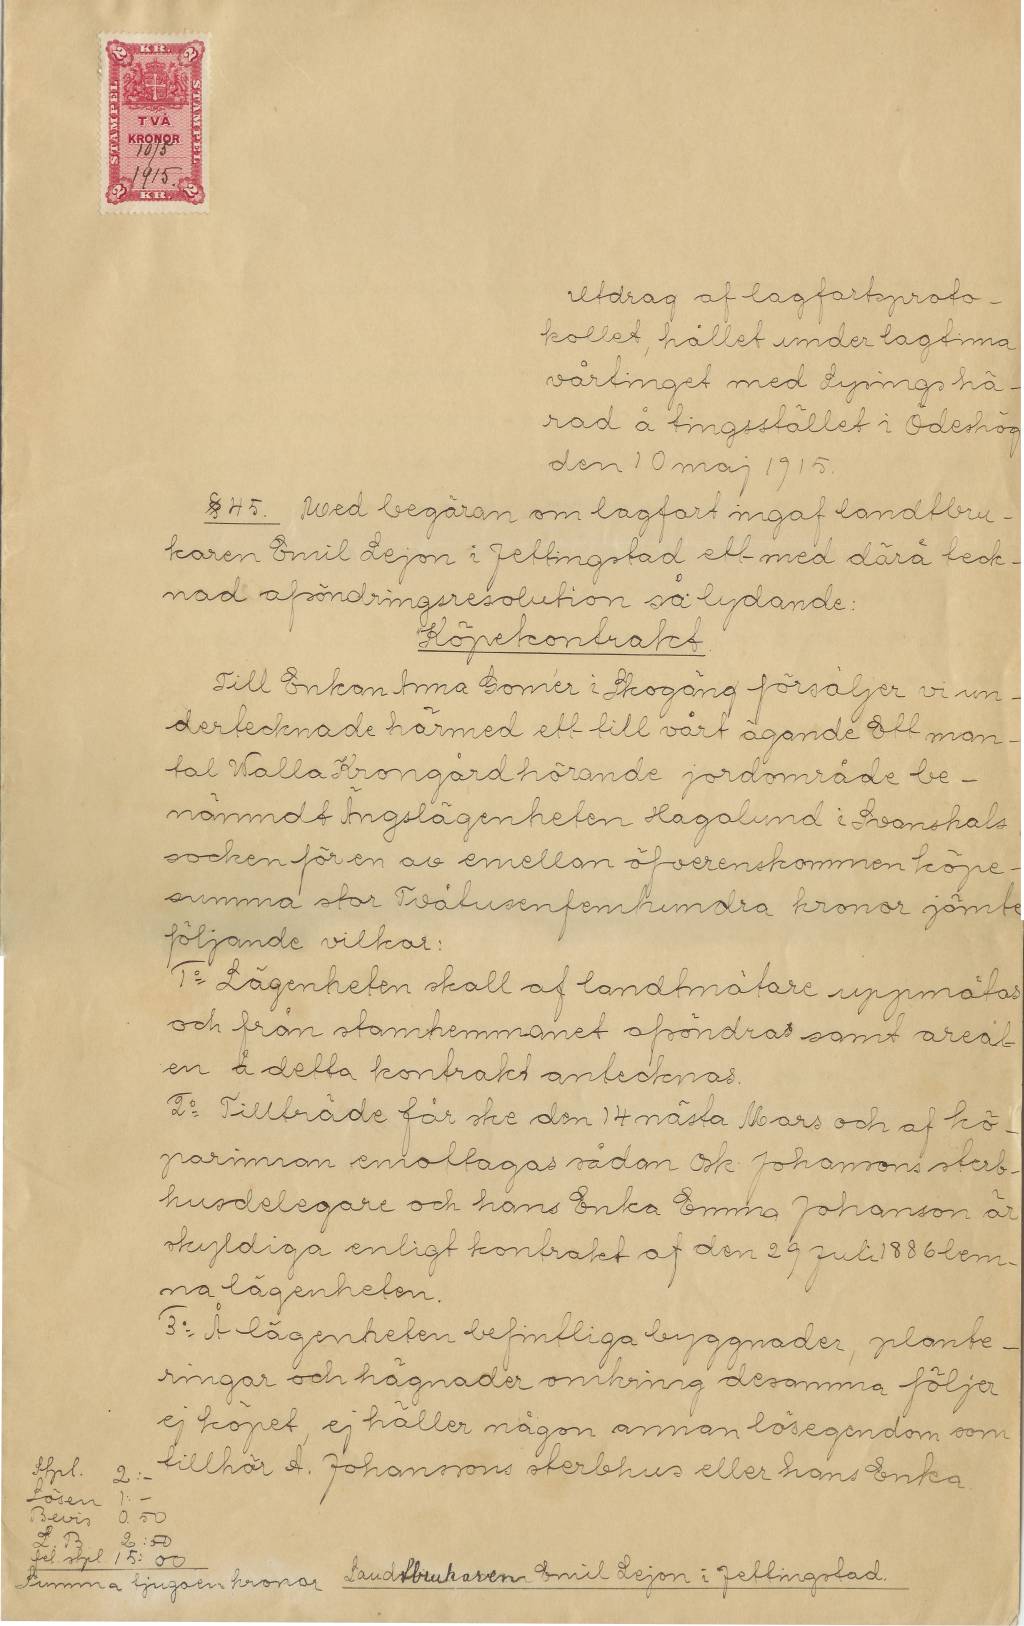 KR.
STAMPEL
STAMPEL
TVÅ
KRONOR
10/5
1915.
KR.
Utdrag af lagfartsproto-
kollet, hållet under lagtima
vårtinget med Lysings hä-
rad å tingsstället i Ödeshög
den 10 maj 1915.
§ 45. Med begäran om lagfart ingaf landtbru-
karen Emil Lejon i Jettingstad ett med därå teck-
nad afsöndringsresolution så lydande:
Köpekontrakt.
Till Enkan Anna Gomér i Skogäng försäljer vi un-
dertecknade härmed ett till vårt ägande Ett man-
tal Walla Krongård hörande jordområde be-
nämndt Ängslägenheten Hagalund i Svanshals
socken för en av emellan öfverenskommen köpe-
summa stor Tvåtusenfemhundra kronor jämte
följande vilkor:
1º= Lägenheten skall af landtmätare uppmätas
och från stamhemmanet afsöndras samt areal-
en å detta kontrakt antecknas.
2º= Tillträde får ske den 14 nästa Mars och af kö-
parinnan emottagas sådan Osk. Johansons sterb-
husdelegare och hans Enka Emma Johanson är
skyldiga enligt kontrakt af den 29 Juli 1886 lem-
na lägenheten.
3º= Å lägenheten befintliga byggnader, plante-
ringar och hägnader omkring desamma följer
ej köpet, ej häller någon annan lösegendom som
tillhör A. Johanssons sterbhus eller hans Enka
Stpl. 2:-
Lösen 1:-
Bevis 0.50
L. B 2:50
bel. stpl 15:00
Summa tjugoen kronor
Landtbrukaren Emil Lejon i Jettingstad.